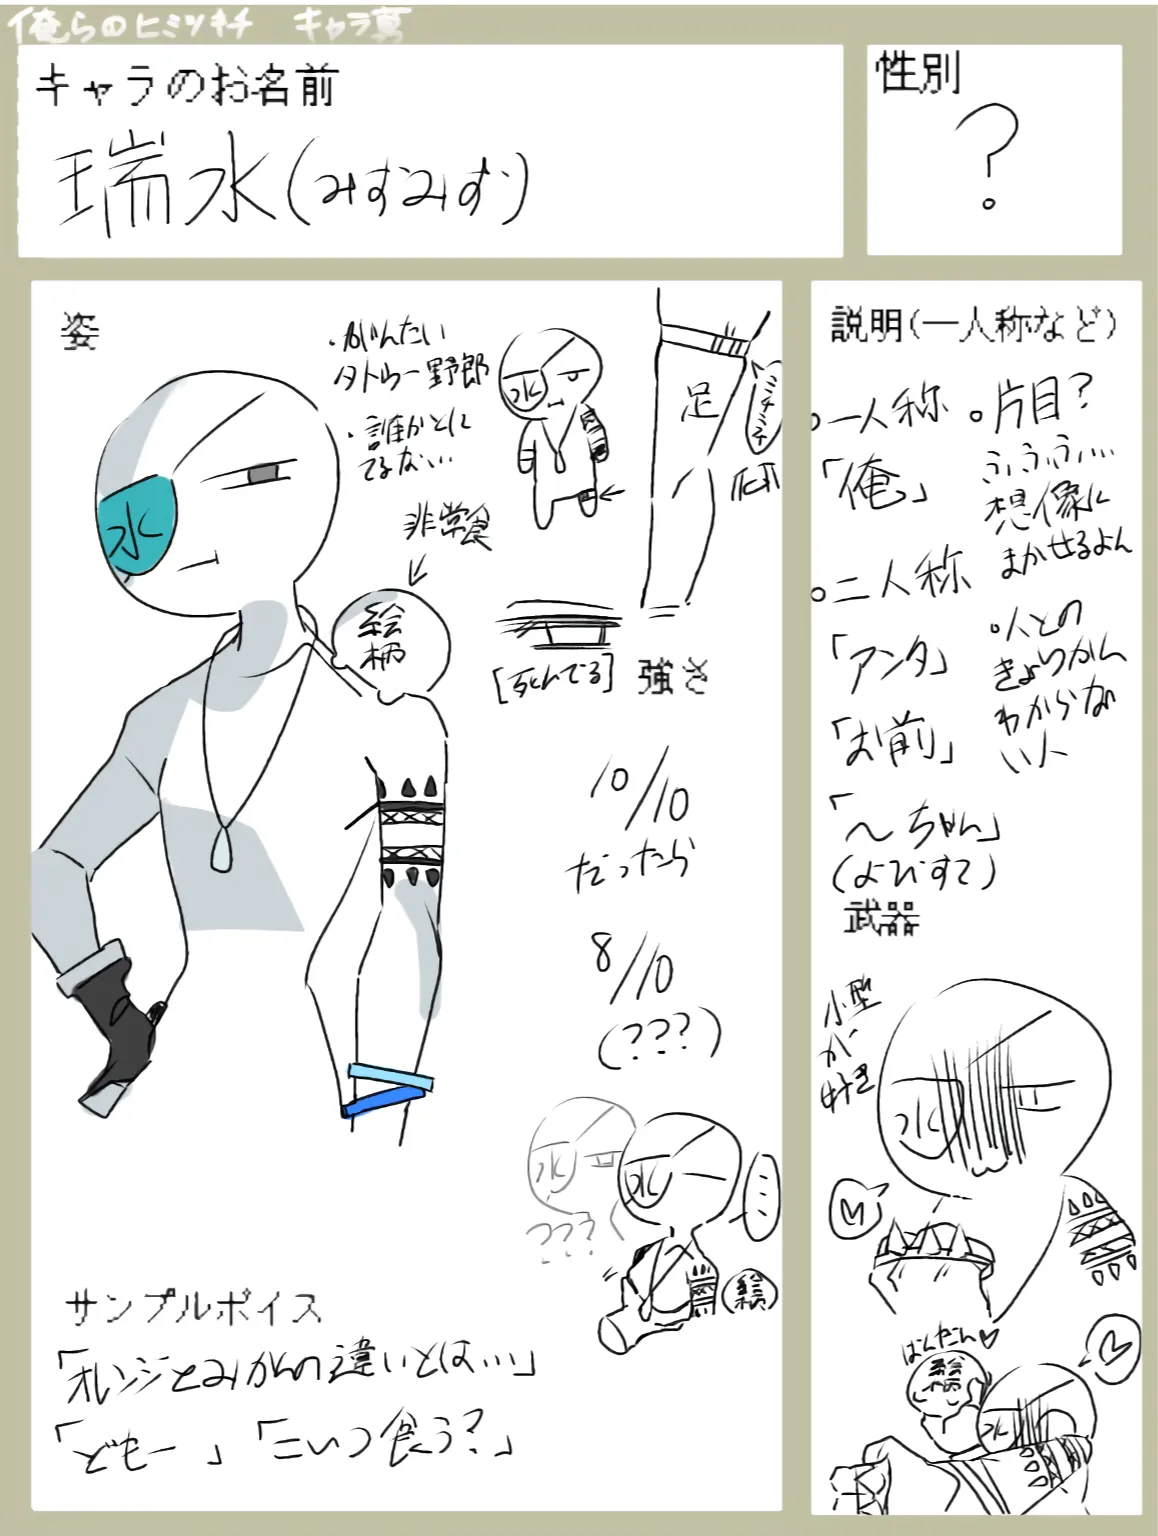 俺らのヒミツキチ キャラ募
キャラのお名前
瑞水(みすみず)
性別
?
姿
・がんたい
タトゥー野郎
・誰かとに
てるな...
非常食
絵
柄
水
水
足
ミチミチ
[死んでる]
強さ
10/10
だったら
8/10
(???)
水
水
???
絵
サンプルボイス
「オレンジとみかんの違いとは...」
「どもー」「こいつ食う?」
説明(一人称など)
○一人称
「俺」
○二人称
「アンタ」
「お前」
「~ちゃん」
(よびすて)
○片目?
ふふふ...
想像に
まかせるよん
○人との
きょりかん
わからな
い人
武器
小型
が
好き
水
ばんだん♡
絵
柄
水